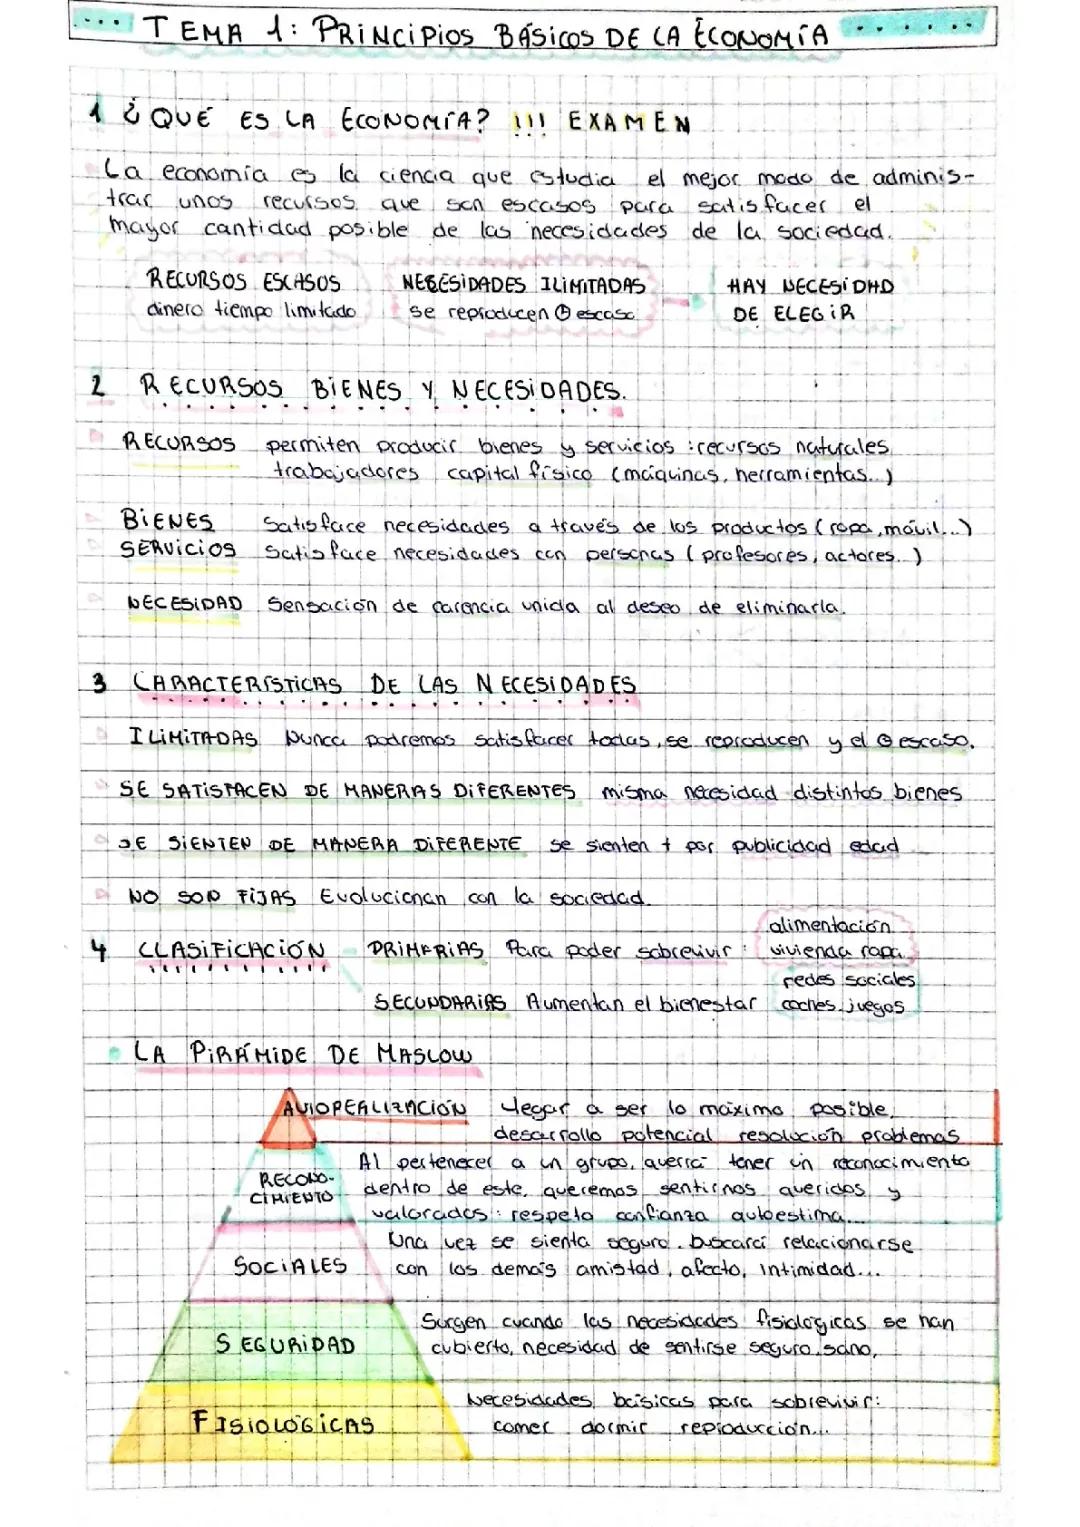 TEMA 1: PRINCIPIOS BÁSICOS DE LA ECONOMÍA
1 ¿QUÉ ES LA ECONOMÍA? !!! EXAMEN
La economía es la ciencia que estudia el mejor modo de adminis-
trar unos recursos que son escasos para satisfacer el
mayor cantidad posible de las necesidades de la sociedad.
RECURSOS ESCASOS
dinero tiempo limitado
NECESIDADES ILIMITADAS
se reproducen escaso
HAY NECESIDAD
DE ELEGIR
2 RECURSOS BIENES Y NECESIDADES.
RECURSOS permiten producir bienes y servicios : recursos naturales
trabajadores capital físico (máquinas, herramientas...)
BIENES Satisface necesidades a través de los productos (ropa, móvil...)
SERVICIOS Satisface necesidades con personas (profesores, actores...)
NECESIDAD Sensación de carencia unida al deseo de eliminarla.
3 CARACTERÍSTICAS DE LAS NECESIDADES
ILIMITADAS Nunca podremos satisfacer todas, se reproducen y el escaso.
SE SATISFACEN DE MANERAS DIFERENTES misma necesidad distintos bienes
SE SIENTEN DE MANERA DIFERENTE se sienten + por publicidad edad
NO SON FIJAS Evolucionan con la sociedad.
4 CLASIFICACIÓN PRIMARIAS Para poder sobrevivir : alimentación vivienda ropa.
SECUNDARIAS Aumentan el bienestar redes sociales coches juegos
LA PIRÁMIDE DE MASLOW
AUTOREALIZACIÓN llegar a ser lo máximo posible,
desarrollo potencial resolución problemas
RECONO-
CIMIENTO
Al pertenecer a un grupo, querrá tener un reconocimiento
dentro de este, queremos sentirnos queridos y
valorados : respeto confianza autoestima...
SOCIALES
Una vez se sienta seguro. buscará relacionarse
con los demás amistad, afecto, intimidad...
SEGURIDAD
Surgen cuando las necesidades fisiológicas se han
cubierto, necesidad de sentirse seguro, sano,
FISIOLÓGICAS
Necesidades básicas para sobrevivir:
comer dormir reproducción...